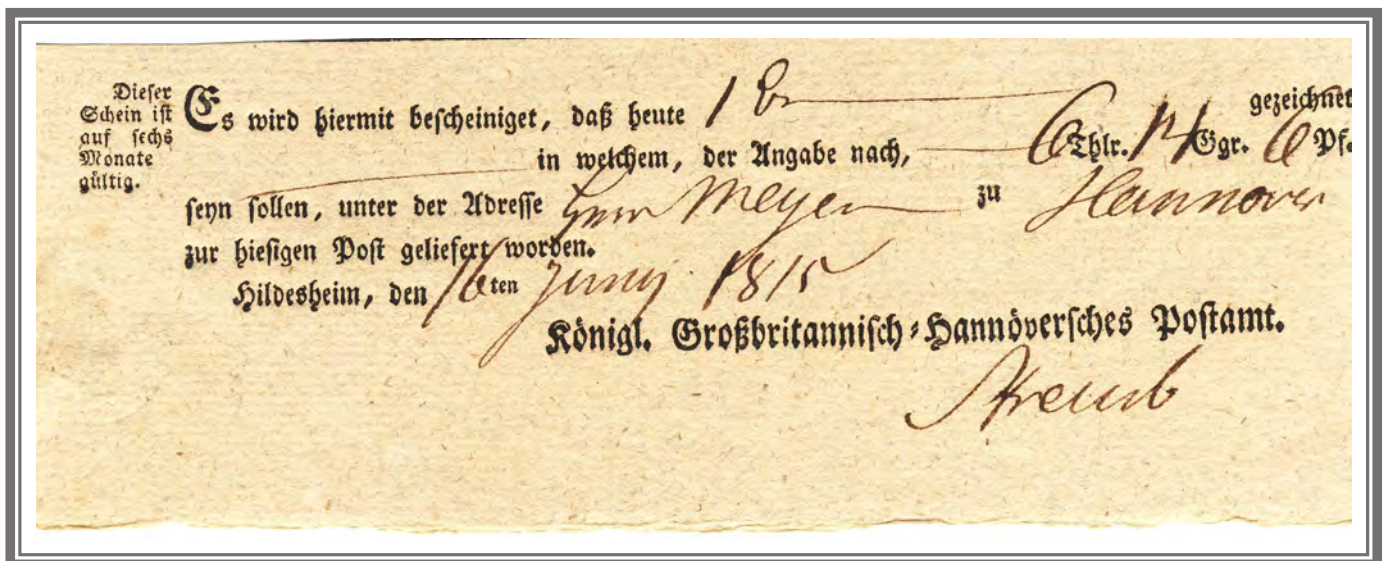 Dieser
Schein ist
auf sechs
Monate
gültig.
Es wird hiermit bescheiniget, daß heute 1 Br gezeichnet
in welchem, der Angabe nach, 6 Thlr. 14 Ggr. 6 Pf.
seyn sollen, unter der Adresse Herr Meyer zu Hannover
zur hiesigen Post geliefert worden.
Hildesheim, den 16ten Juny 1815
Königl. Großbritannisch-Hannöversches Postamt.